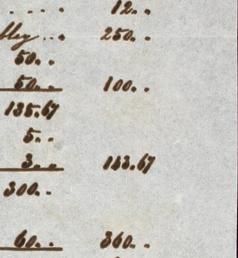 . . . . . 12. .
bley . . . 250. .
50. .
50. . 100. .
135.67
5. .
3. . 143.67
300. .
60. . 360. .